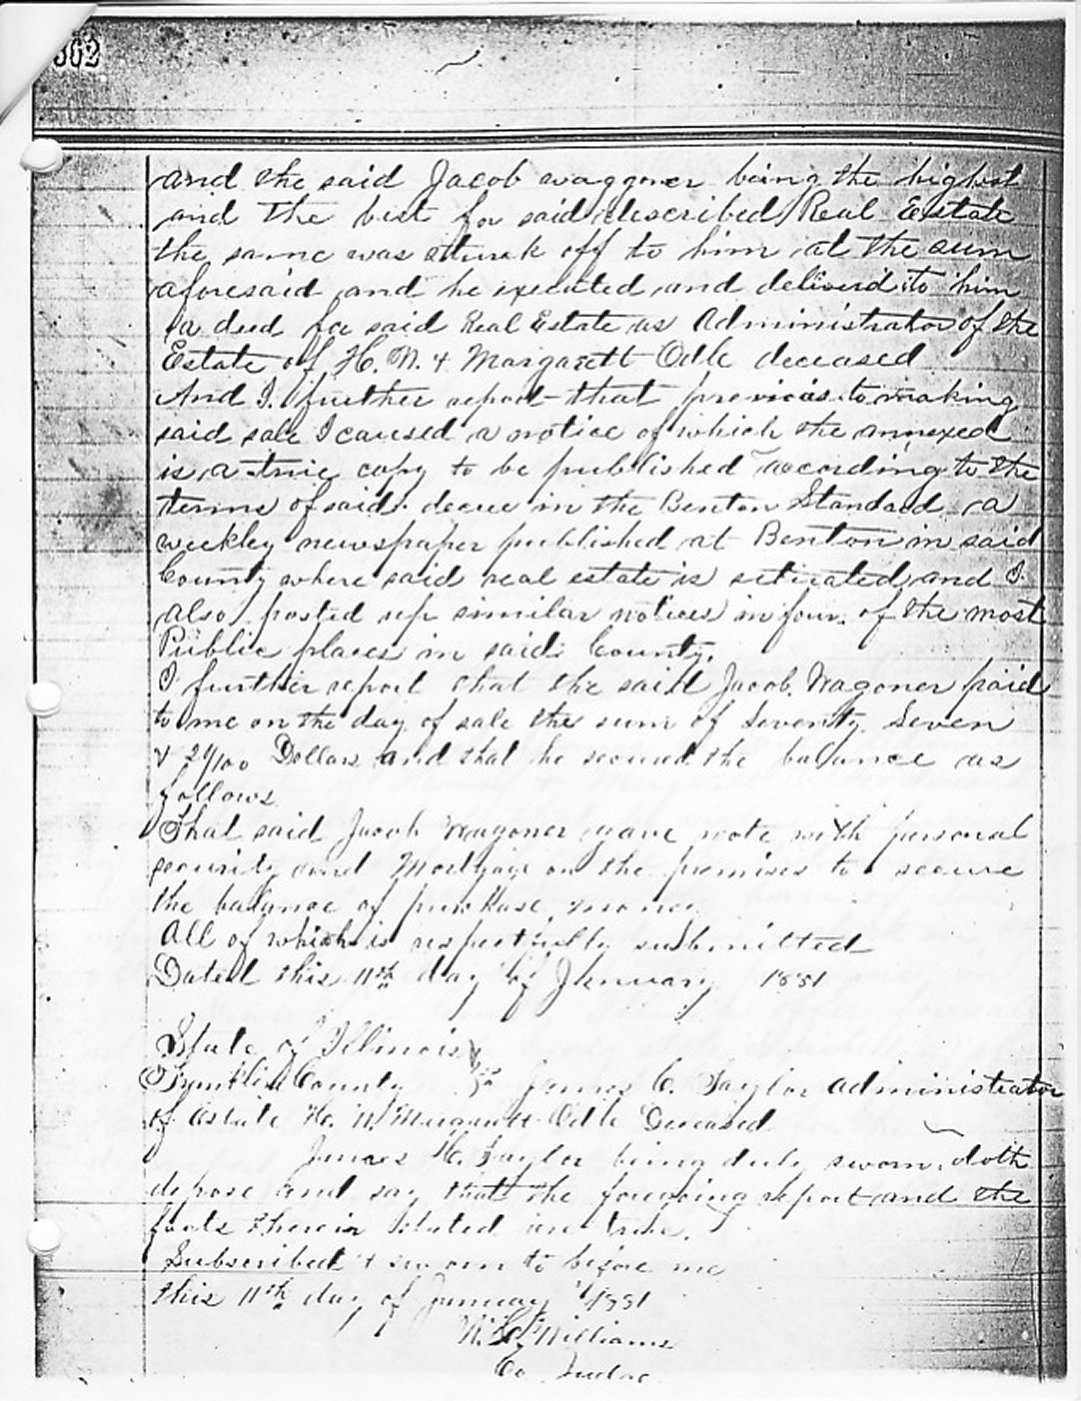 362
and the said Jacob waggoner being the highest
and the best for said described Real Estate
the same was struck off to him at the sum
aforesaid and he executed and deliverd to him
a deed for said Real Estate as Administrator of the
Estate of H. N. & Margarett Odle deceased
And I further report that previous to making
said sale I caused a notice of which the annexed
is a true copy to be published according to the
terms of said decree in the Benton Standard a
weekley newspaper published at Benton in said
County where said real estate is situated and I
also posted up similar notices in four of the most
Public places in said County.
I further report that the said Jacob Wagoner paid
to me on the day of sale the sum of Seventy Seven
& /100 Dollars and that he secured the balance as
follows
That said Jacob Wagoner gave note with personal
security and Mortgage on the premises to secure
the balance of purchase money
All of which is respectfully submitted
Dated this 11th day of January 1881
State of Illinois
Franklin County ss James C. Taylor administrator
of Estate H. N. Margarett Odle Deceased
James C. Taylor being duly sworn doth
depose and say that the foregoing report and the
facts therein stated are true.
Subscribed & sworn to before me
this 11th day of January 1881
Williams
Co Judge